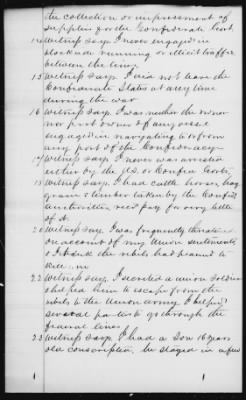 the collection or impressment of
supplies for the Confederate Govt.
14 Witness says I never engaged in
blockade running or illicit traffic
between the lines
15 Witness says I did not leave the
Confederate States at any time
during the war
16 Witness says I was neither the owner
nor part owner of any vessel
engaged in navigating to or from
any port of the Confederacy
17 Witness says I never was arrested
either by the U.S. or Confed Govts;
18 Witness says I had cattle horses hogs
grain & timber taken by the Confed
Authorities recd pay for very little
of it.
20 Witness says I was frequently threatened
on account of my Union sentiments
& I think the rebels had planned to
kill me
22 Witness says I secreted a union soldier
& helped him to escape from the
rebels to the Union army I helped
several parties to go through the
federal lines
23 Witness says I had a Son 16 years
old conscripted, he stayed in a few